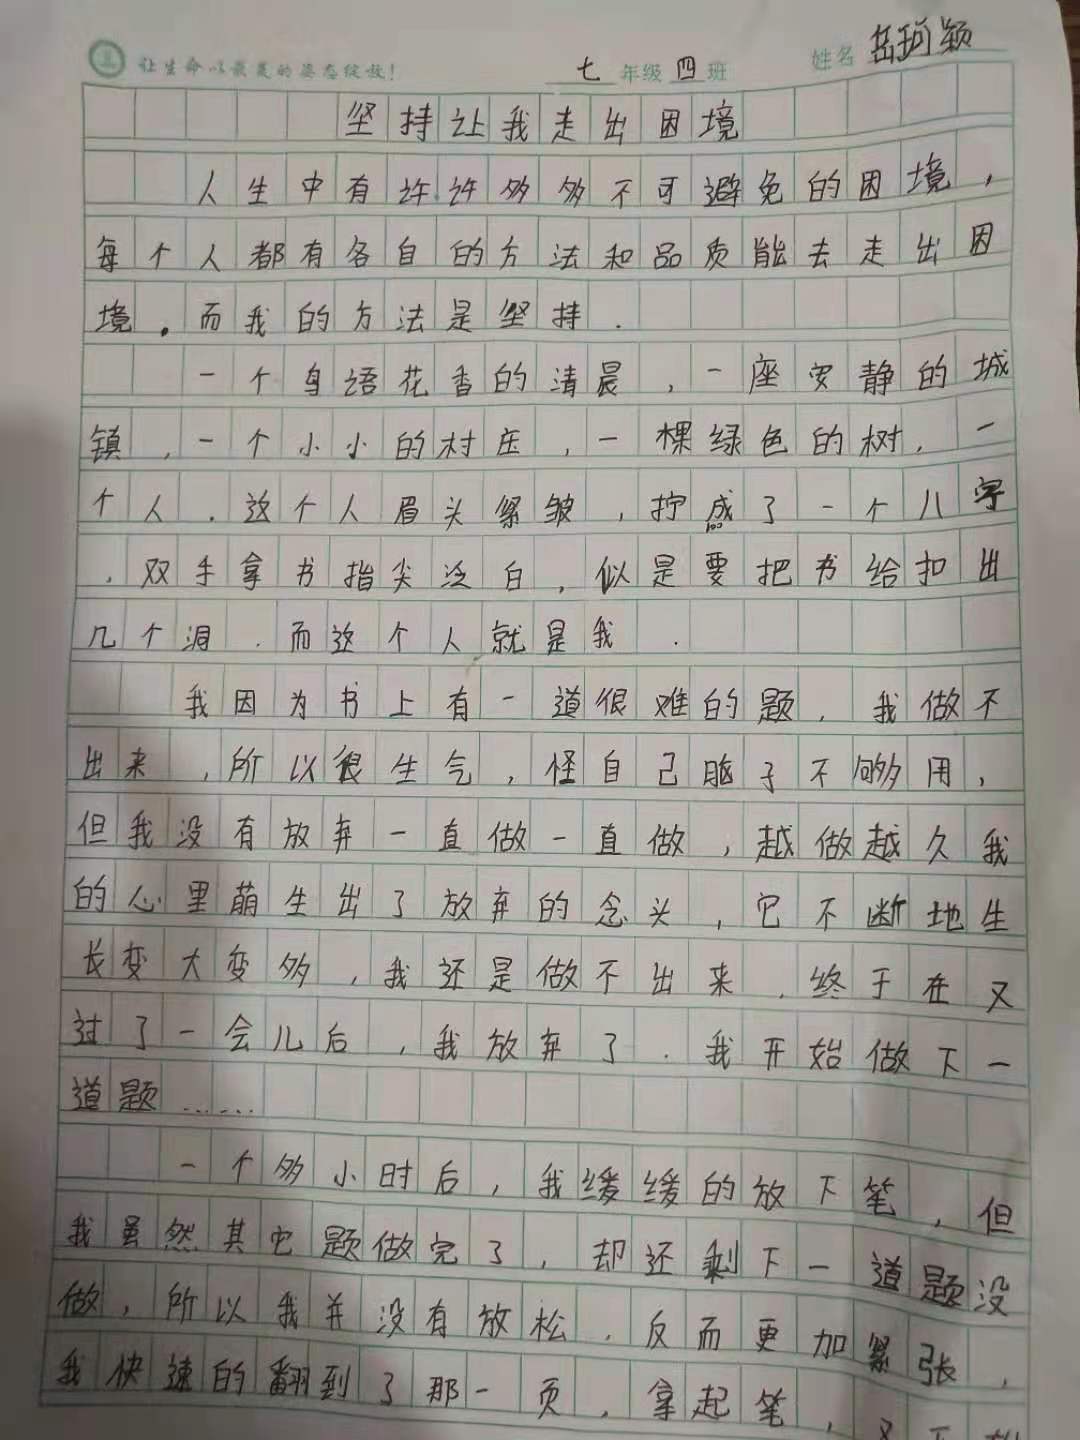 让生命以最美的姿态绽放!
七年级四班
姓名 岳珂颖
坚持让我走出困境
人生中有许许多多不可避免的困境，
每个人都有各自的方法和品质能去走出困
境。而我的方法是坚持.
一个鸟语花香的清晨，一座安静的城
镇，一个小小的村庄，一棵绿色的树，一
个人.这个人眉头紧皱，拧成了一个八字
，双手拿书指尖泛白，似是要把书给扣出
几个洞.而这个人就是我.
我因为书上有一道很难的题，我做不
出来，所以很生气，怪自己脑子不够用，
但我没有放弃一直做一直做，越做越久我
的心里萌生出了放弃的念头，它不断地生
长变大变多，我还是做不出来.终于在又
过了一会儿后，我放弃了.我开始做下一
道题……
一个多小时后，我缓缓的放下笔，但
我虽然其它题做完了，却还剩下一道题没
做，所以我并没有放松.反而更加紧张，
我快速的翻到了那一页，拿起笔，又